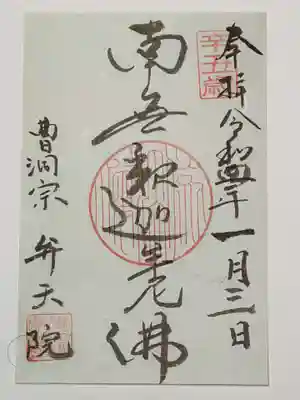 奉拝 令和四年一月三日
辛丑歳
南無釈迦牟尼佛
曹洞宗 弁天院